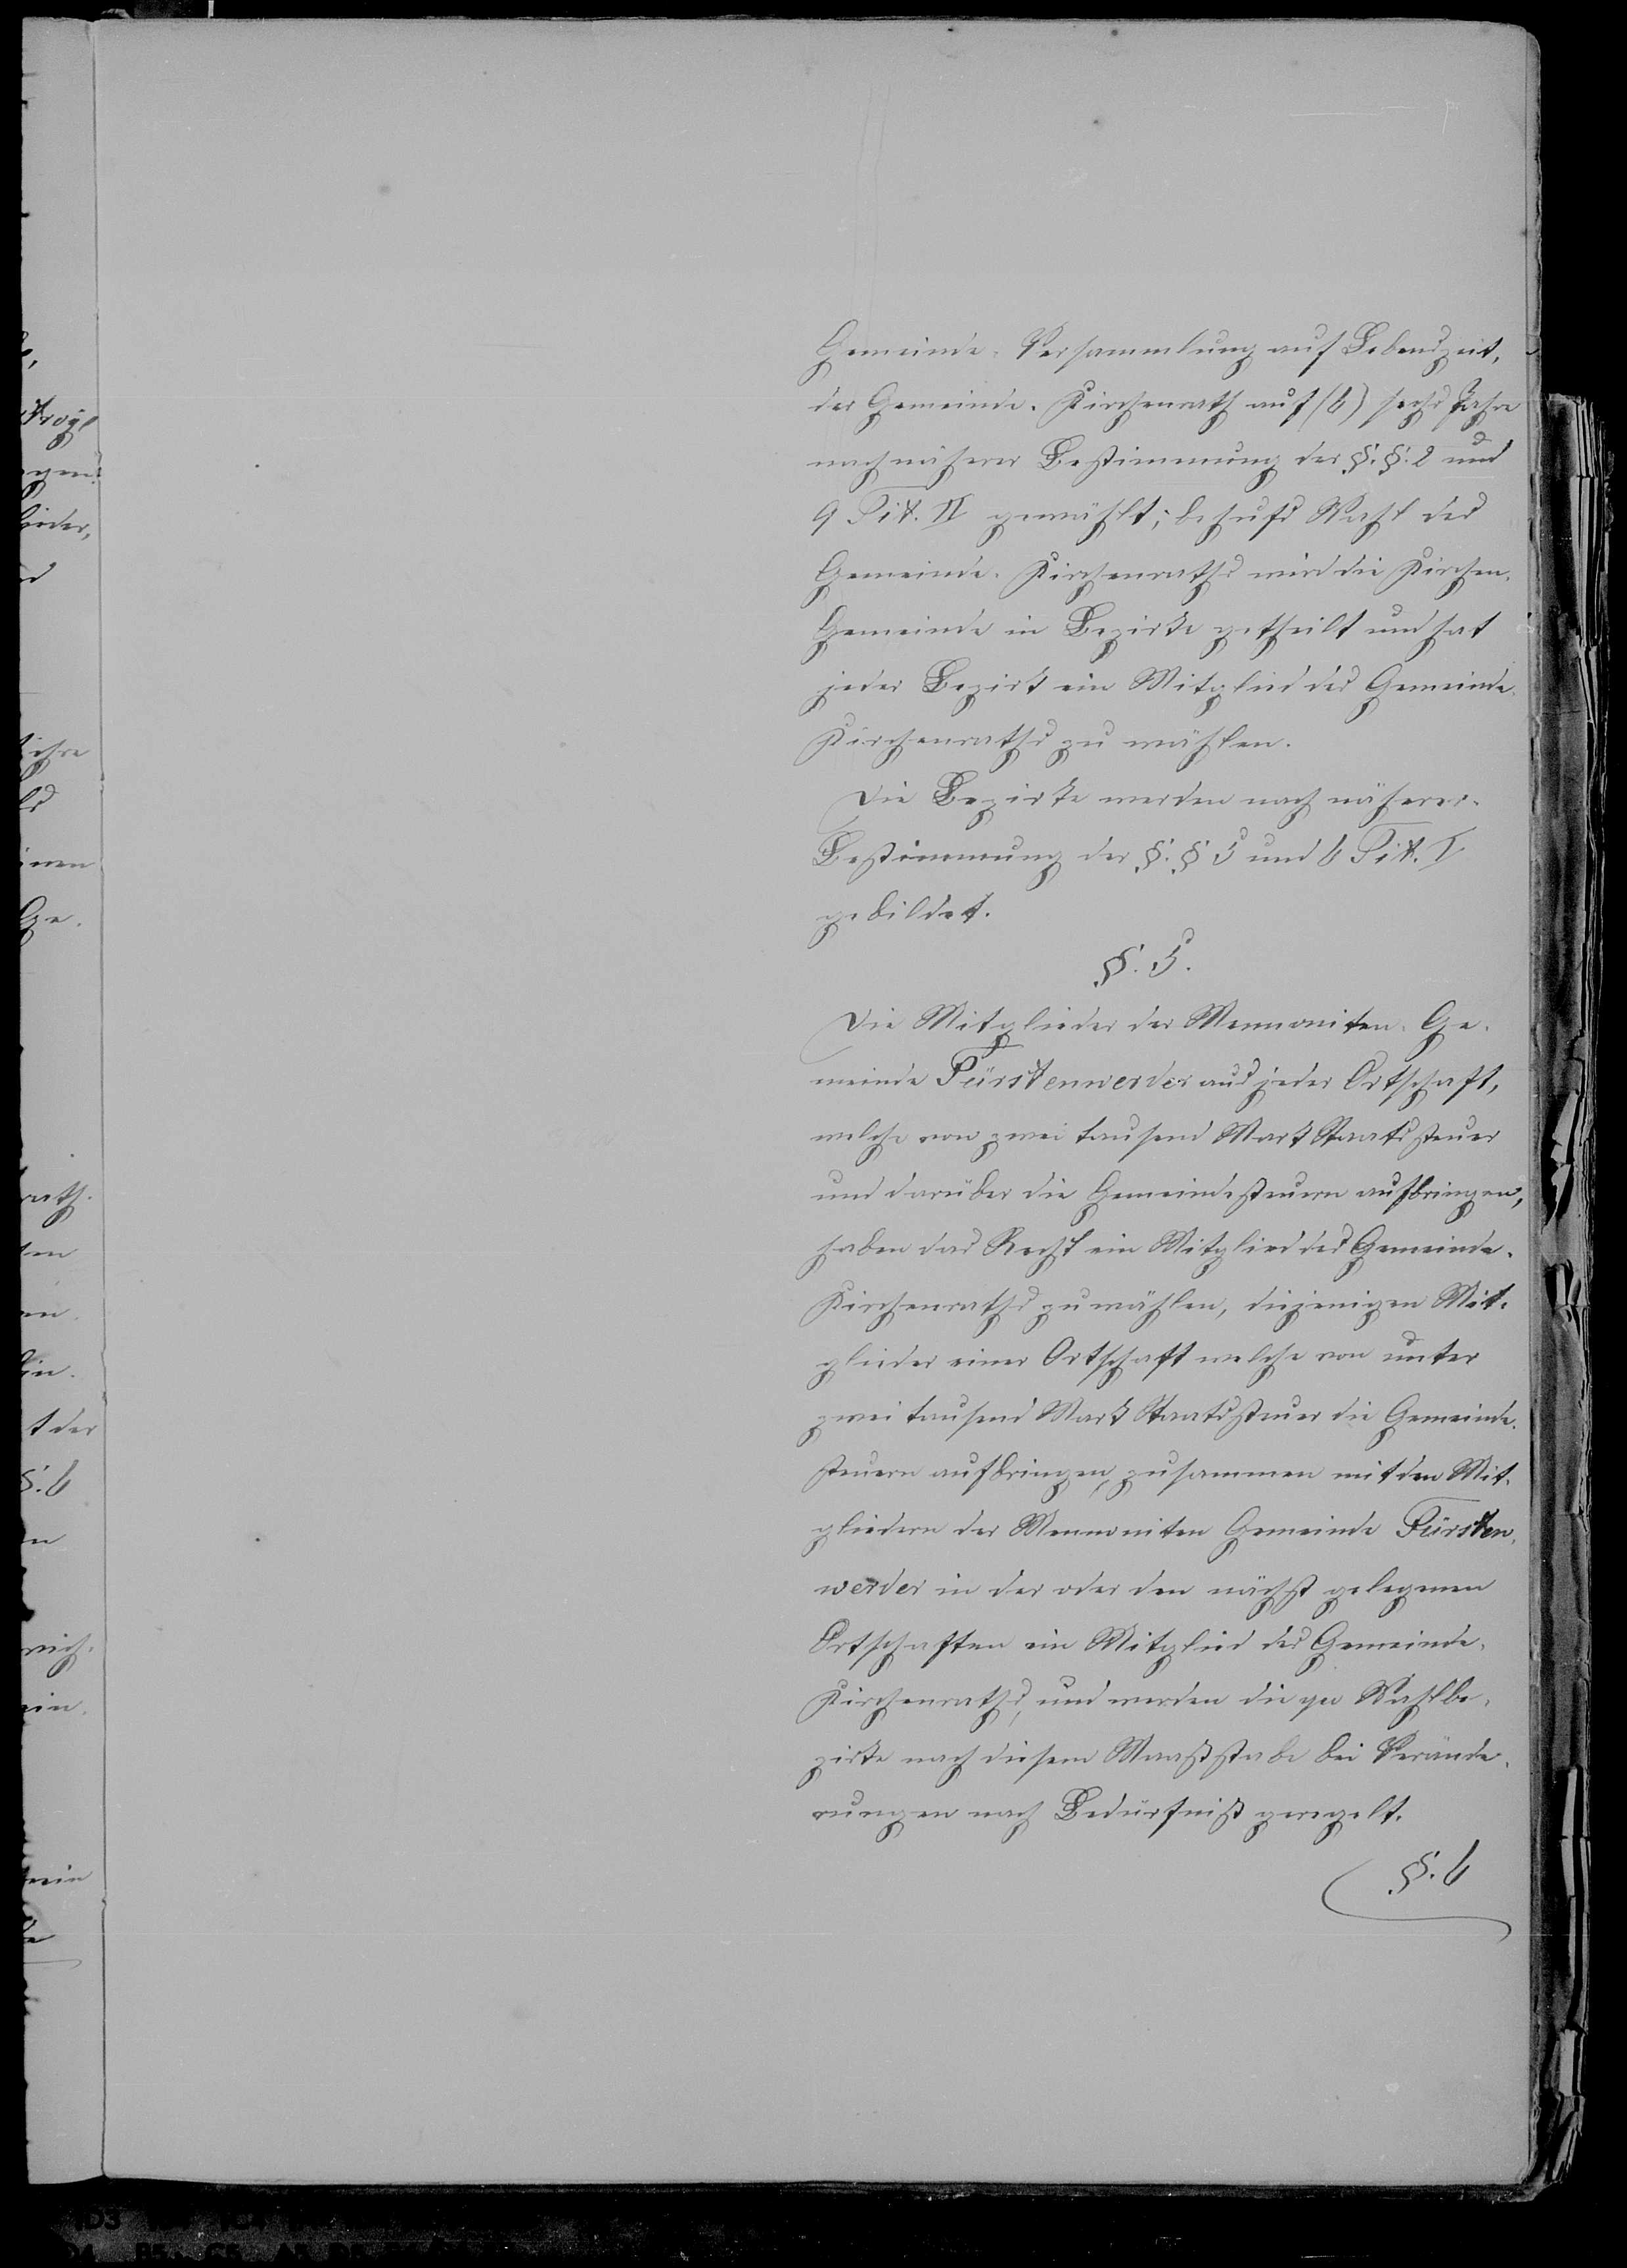 Gemeinde-Versammlung auf Lebenszeit,
der Gemeinde-Kirchenrath auf (6) sechs Jahre
nach näherer Bestimmung der §. §. 2 und
9 Tit. II gewählt; behufs Wahl des
Gemeinde-Kirchenraths wird die Kirchen-
Gemeinde in Bezirke getheilt und hat
jeder Bezirk ein Mitglied des Gemeinde-
Kirchenraths zu wählen.
Die Bezirke werden nach näherer
Bestimmung der §. § 5 und 6 Tit. I
gebildet.
§. 5.
Die Mitglieder der Mennoniten-Ge-
meinde Fürstenwerder aus jeder Ortschaft,
welche von zwei tausend Mark Staatssteuer
und darüber die Gemeindesteuern aufbringen,
haben das Recht ein Mitglied des Gemeinde-
Kirchenraths zu wählen, diejenigen Mit-
glieder einer Ortschaft welche von unter
zwei tausend Mark Staatssteuer die Gemeinde-
steuern aufbringen, zusammen mit den Mit-
gliedern der Mennoniten Gemeinde Fürsten-
werder in der oder den nächst gelegenen
Ortschaften ein Mitglied des Gemeinde-
Kirchenraths, und werden die qu Wahlbe-
zirke nach diesem Maaßstabe bei Verände-
rungen nach Bedürfniß geregelt.
§. 6